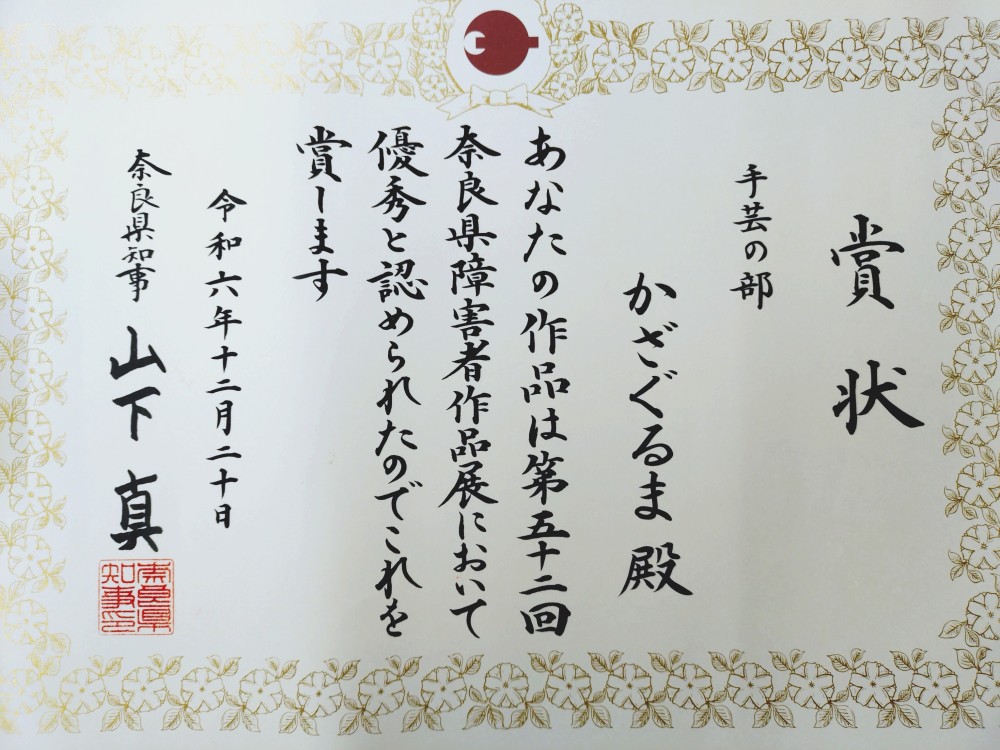 賞状
手芸の部
かざぐるま 殿
あなたの作品は第五十二回
奈良県障害者作品展において
優秀と認められたのでこれを
賞します
令和六年十二月二十日
奈良県知事 山下 真
奈良県
知事印